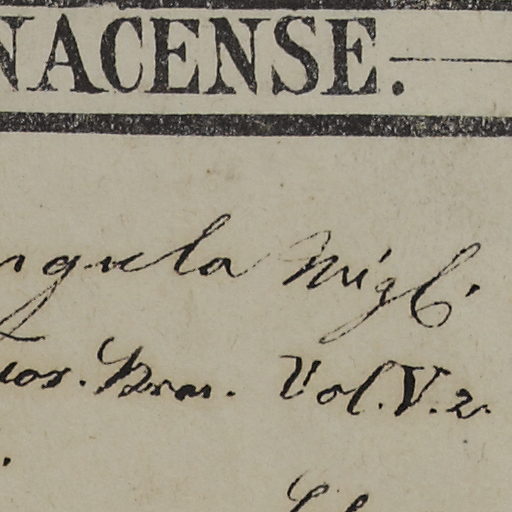 NACENSE.
ngula Migl.
Flor. Bras. Vol. V. 2.